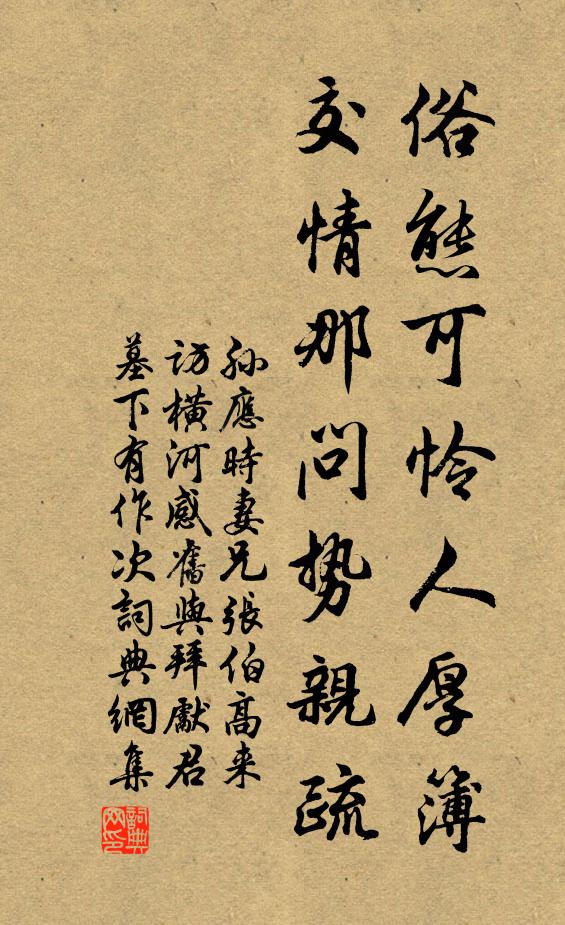 俗態可怜人厚簿
交情那問勢親疏
孫應時妻兄張伯高来
訪横河感舊與拜獻君
墓下有作次詞典網集
詞典網印